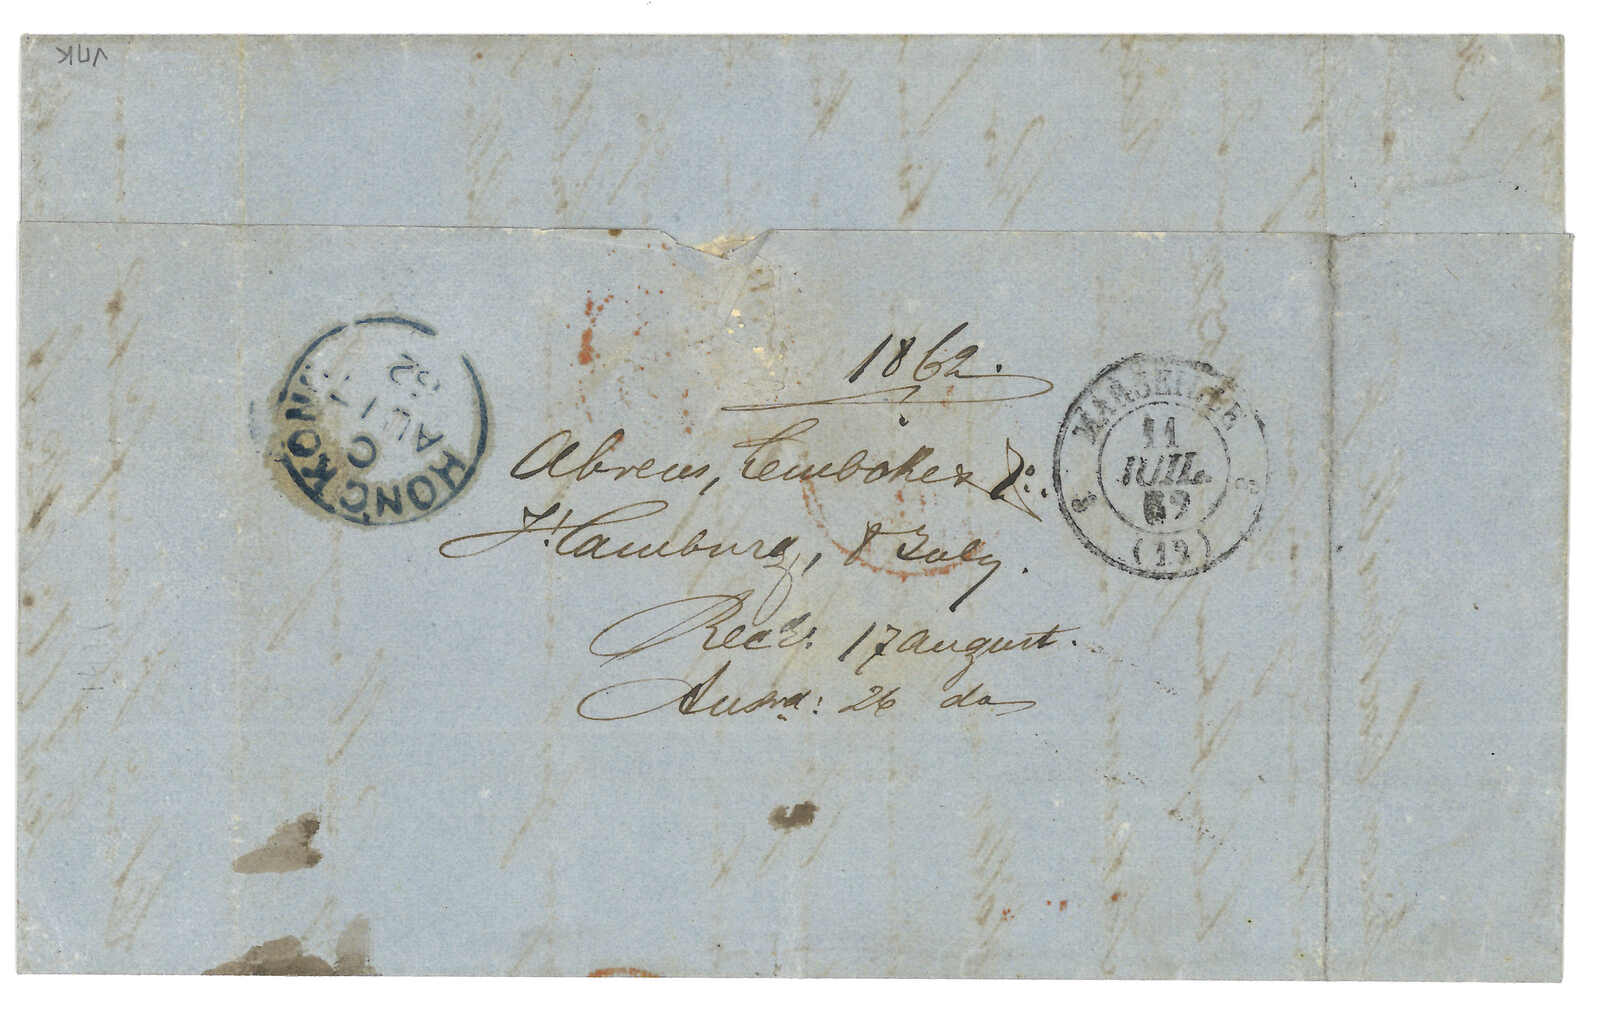 VПK
HONG KONG
C
AU 17
62
1862.
Ahrens,
Hamburg, 8 July.
Recd. 17 august.
Answd: 26 do
MARSEILLE
11
JUIL.
62
(12)